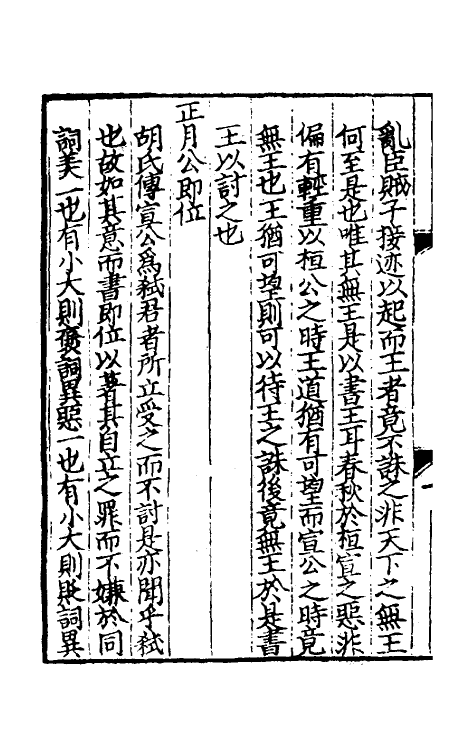 亂臣賊子接迹以起而王者竟不誅之非天下之無王
何至是也唯其無王是以書王耳春秋於桓宣之惡非
偏有輕重以桓公之時王道猶有可望而宣公之時竟
無王也王猶可望則可以待王之誅後竟無王於是書
王以討之也
正月公即位
胡氏傳宣公為弒君者所立受之而不討是亦聞乎弒
也故如其意而書即位以著其自立之罪而不嫌於同
詞美一也有小大則褒詞異惡一也有小大則貶詞異